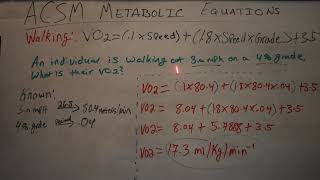 ACSM METABOLIC EQUATIONS
Walking: VO2=(.1 x Speed)+(1.8 x Speed x Grade)+3.5
An individual is walking at 3.0 mph on a 4% grade.
What is their VO2?
Known:
3.0 mph 80.4 meters/min
4% grade .04
VO2 = (.1 x 80.4) + (1.8 x 80.4 x .04) + 3.5
VO2 = (.1 x 80.4) + (1.8 x 80.4 x .04) + 3.5
VO2 = 8.04 + 5.7888 + 3.5
VO2 = 17.3 ml/Kg/min⁻¹